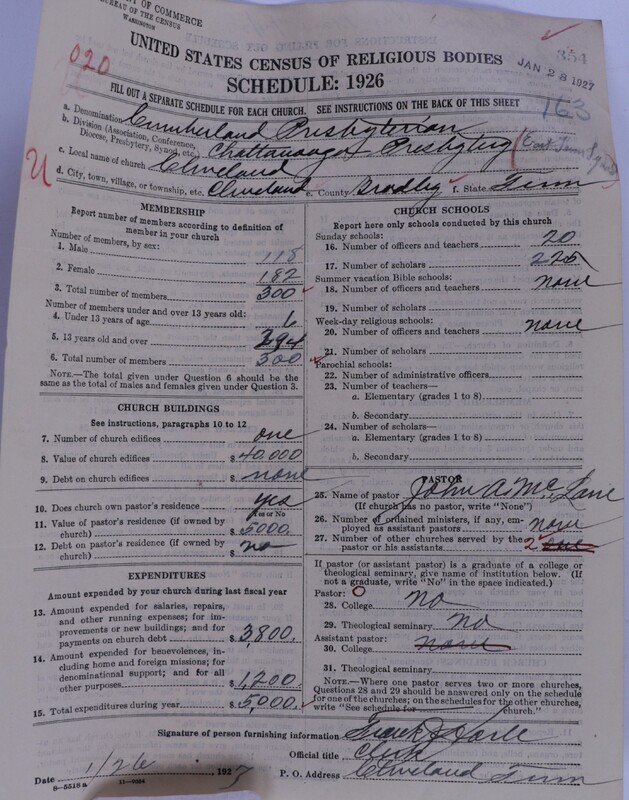 T OF COMMERCE
BUREAU OF THE CENSUS
WASHINGTON
354
JAN 28 1927
UNITED STATES CENSUS OF RELIGIOUS BODIES
020
SCHEDULE: 1926
163
FILL OUT A SEPARATE SCHEDULE FOR EACH CHURCH. SEE INSTRUCTIONS ON THE BACK OF THIS SHEET
a. Denomination Cumberland Presbyterian
b. Division (Association, Conference, Diocese, Presbytery, Synod, etc.) Chattanooga Presbytery (East Tenn Synod)
c. Local name of church Cleveland
d. City, town, village, or township, etc. Cleveland e. County Bradley f. State Tenn
MEMBERSHIP
Report number of members according to definition of member in your church
Number of members, by sex:
1. Male 118
2. Female 182
3. Total number of members 300
Number of members under and over 13 years old:
4. Under 13 years of age 6
5. 13 years old and over 294
6. Total number of members 300
NOTE.—The total given under Question 6 should be the same as the total of males and females given under Question 3.
CHURCH BUILDINGS
See instructions, paragraphs 10 to 12
7. Number of church edifices one
8. Value of church edifices $ 40,000
9. Debt on church edifices $ none
10. Does church own pastor's residence yes
Yes or No
11. Value of pastor's residence (if owned by church) $ 5000.
12. Debt on pastor's residence (if owned by church) $ no
EXPENDITURES
Amount expended by your church during last fiscal year
13. Amount expended for salaries, repairs, and other running expenses; for improvements or new buildings; and for payments on church debt $ 3,800.
14. Amount expended for benevolences, including home and foreign missions; for denominational support; and for all other purposes $ 1,200.
15. Total expenditures during year $ 5,000.
CHURCH SCHOOLS
Report here only schools conducted by this church
Sunday schools:
16. Number of officers and teachers 20
17. Number of scholars 225
Summer vacation Bible schools:
18. Number of officers and teachers none
19. Number of scholars
Week-day religious schools:
20. Number of officers and teachers none
21. Number of scholars
Parochial schools:
22. Number of administrative officers
23. Number of teachers—
a. Elementary (grades 1 to 8)
b. Secondary
24. Number of scholars—
a. Elementary (grades 1 to 8)
b. Secondary
PASTOR
25. Name of pastor John A. McLane
(If church has no pastor, write "None")
26. Number of ordained ministers, if any, employed as assistant pastors none
27. Number of other churches served by the pastor or his assistants 2 one
If pastor (or assistant pastor) is a graduate of a college or theological seminary, give name of institution below. (If not a graduate, write "No" in the space indicated.)
Pastor: O
28. College no
29. Theological seminary no
Assistant pastor:
30. College none
31. Theological seminary
NOTE.—Where one pastor serves two or more churches, Questions 28 and 29 should be answered only on the schedule for one of the churches; on the schedules for the other churches, write "See schedule for church."
Signature of person furnishing information Frank J.
Official title Clerk
Date 1/26, 1927 P. O. Address Cleveland Tenn
8-5518 a 11-9084